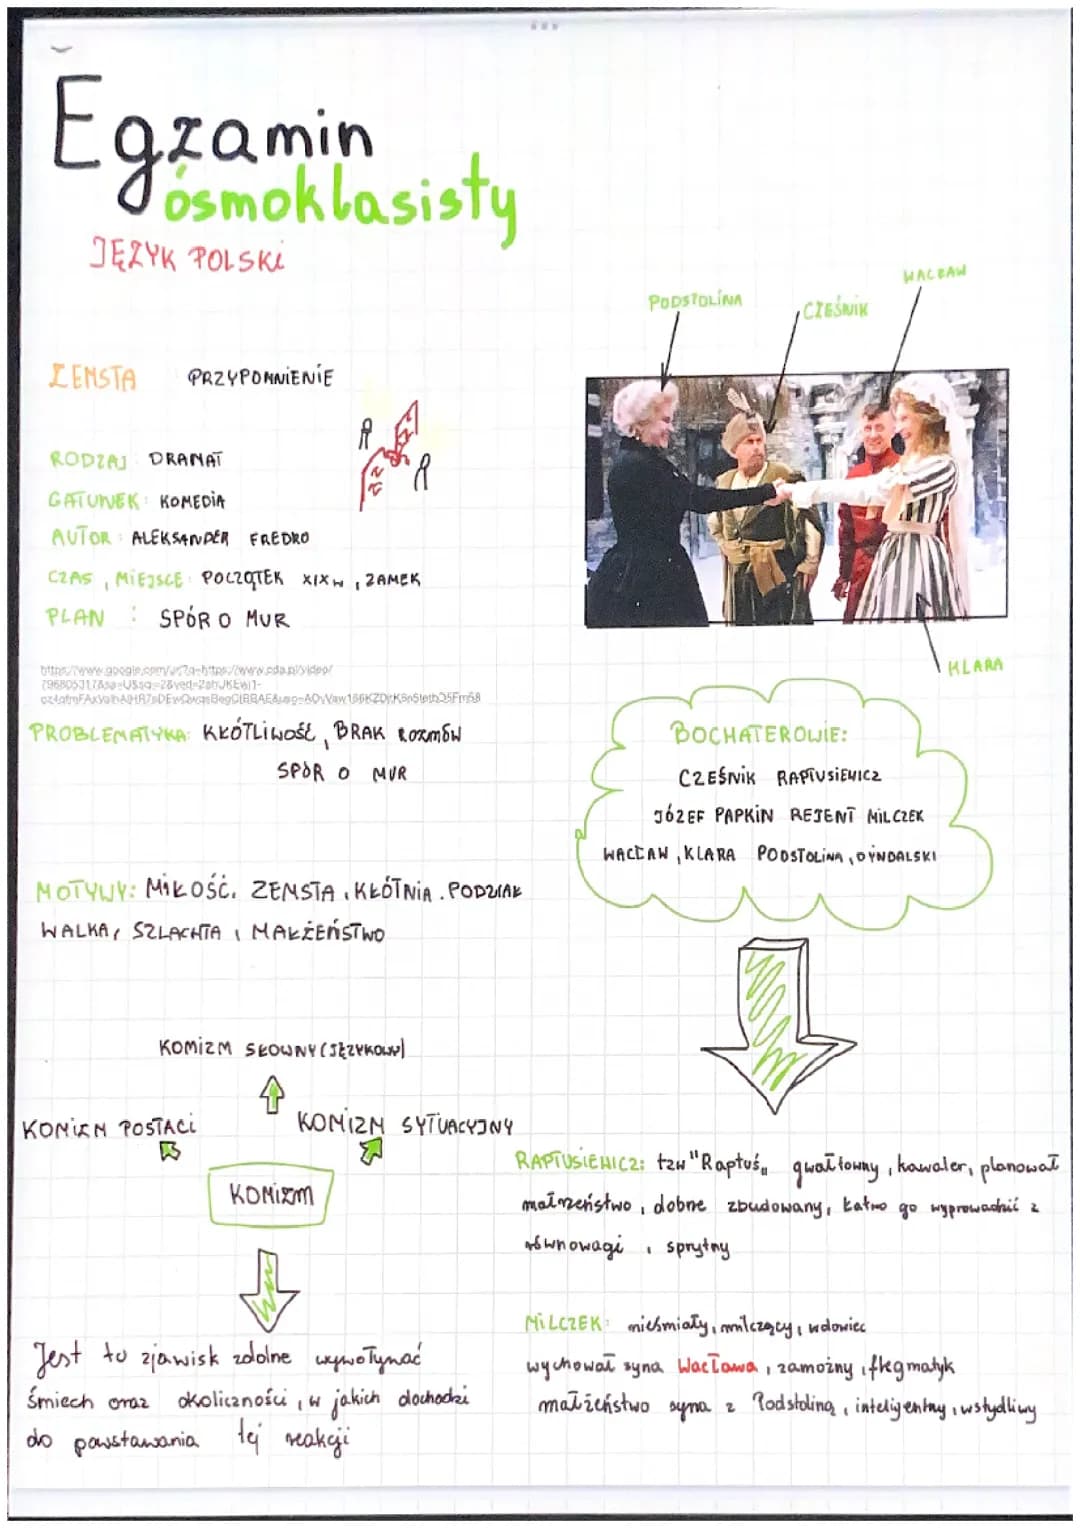 Egzamin
ósmoklasisty
JĘZYK POLSKI
PODSTOLINA
CZEŚNIK
WACŁAW
ZEMSTA PRZYPOMNIENIE
RODZAJ DRAMAT
GATUNEK: KOMEDIA
AUTOR: ALEKSANDER FREDRO
CZAS, MIEJSCE: POCZĄTEK XIX w, ZAMEK
PLAN : SPÓR O MUR
KLARA
PROBLEMATYKA: KŁÓTLIWOŚĆ, BRAK ROZMÓW
SPÓR O MUR
BOCHATEROWIE:
CZEŚNIK RAPTUSIEWICZ
JÓZEF PAPKIN REJENT MILCZEK
WACŁAW, KLARA PODSTOLINA, DYNDALSKI
MOTYWY: MIŁOŚĆ, ZEMSTA, KŁÓTNIA. PODZIAŁ
WALKA, SZLACHTA, MAŁŻEŃSTWO
KOMIZM SŁOWNY (JĘZYKOWY)
KOMIZM POSTACI
KOMIZM SYTUACYJNY
KOMIZM
Jest to zjawisk zdolne wywoływać
śmiech oraz okoliczności, w jakich dochodzi
do powstawania tej reakcji
RAPTUSIEWICZ: tzw "Raptuś" gwałtowny, kawaler, planował
małrzeństwo, dobne zbudowany, łatwo go wyprowadzić z
równowagi, sprytny
MILCZEK: nieśmiały, milczący, wdowiec
wychował syna Wacława, zamożny, flegmatyk
małżeństwo syna z Podstoliną, inteligentny, wstydliwy